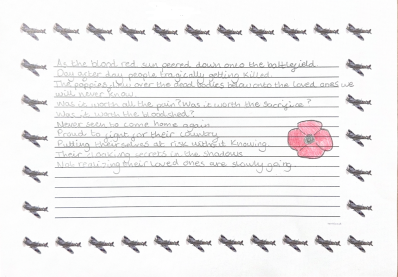 As the blood red sun peered down onto the battlefield
Day after day people tragically getting killed.
The poppies over the dead bodies the loved ones we
will never know.
Was it worth all the pain? Was it worth the sacrifice?
Was it worth the bloodshed?
Never seen to come home again
Proud to fight for their country
Putting themselves at risk without knowing
Their secrets in the shadows
Not realizing their loved ones are slowly going